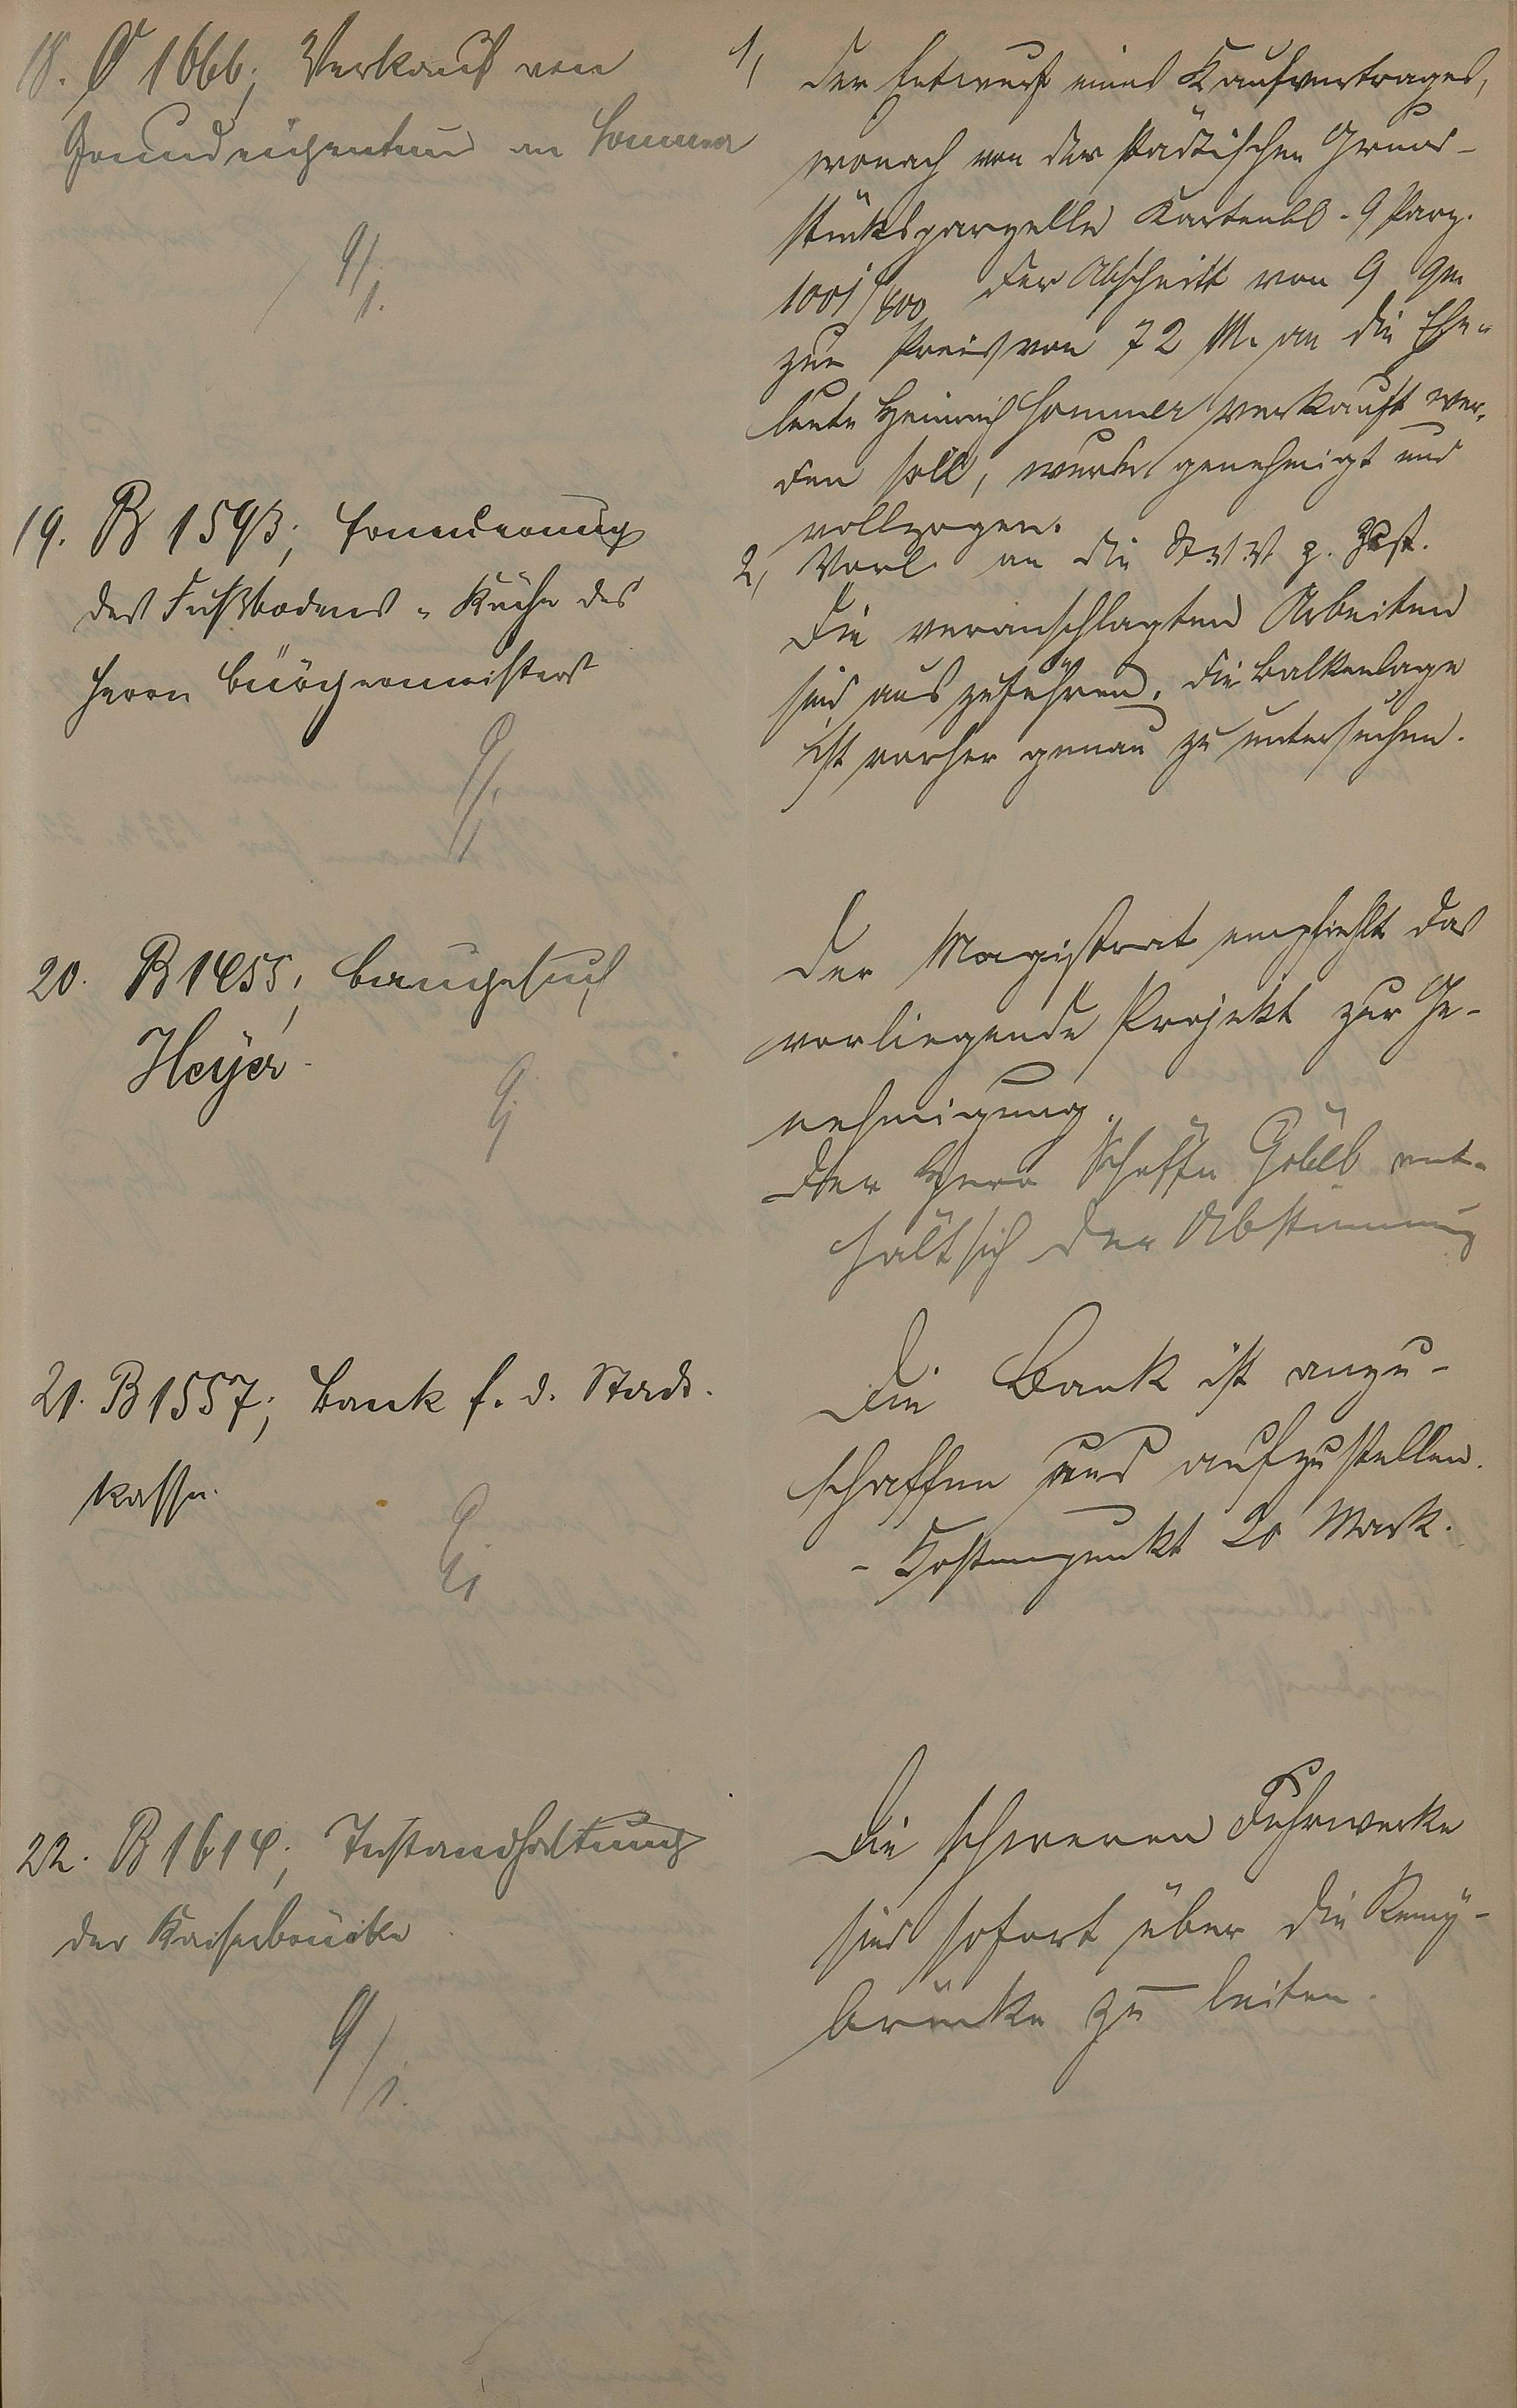 18. O 1666; Verkauf von
Grundeigentum an Sommer
9/1.
1, Der Entwurf eines Kaufvertrages,
wonach von der städtischen Grund-
stücksparzelle Kartenbl. 9 Parz.
1001/400 der Abschnitt von 9 qm
zum Preis von 72 M. an die Ehe-
leute Heinrich Sommer verkauft wer-
den soll, wurde genehmigt und
vollzogen.
2, Vorl. an die St.V.V. z. Zust.
19. B 1593; Erneuerung
des Fußbodens - Küche des
Herrn Bürgermeisters
9/1.
Die veranschlagten Arbeiten
sind auszuführen. Die Balkenlage
ist vorher genau zu untersuchen.
20. B 1455; Baugesuch
Heyer
Der Magistrat empfiehlt das
vorliegende Projekt zur Ge-
nehmigung.
Der Herr Schöffe Göbel ent-
hält sich der Abstimmung
21. B 1557; Bank f. d. Stadt-
kasse.
Die Bank ist anzu-
schaffen und aufzustellen.
- Kostenpunkt 20 Mark.
22. B 1614; Instandhaltung
der Kaiserbrücke
9/1.
Die schweren Fuhrwerke
sind sofort über die Remy-
brücke zu leiten.